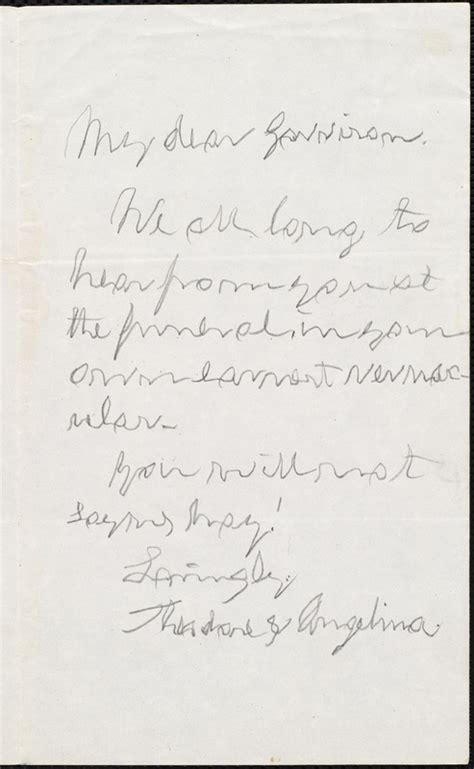 My dear Garrison.
We all long to
hear from you at
the funeral in your
own earnest vernac-
ular.
You will not
say us Nay!
Lovingly.
Theodore & Angelina.